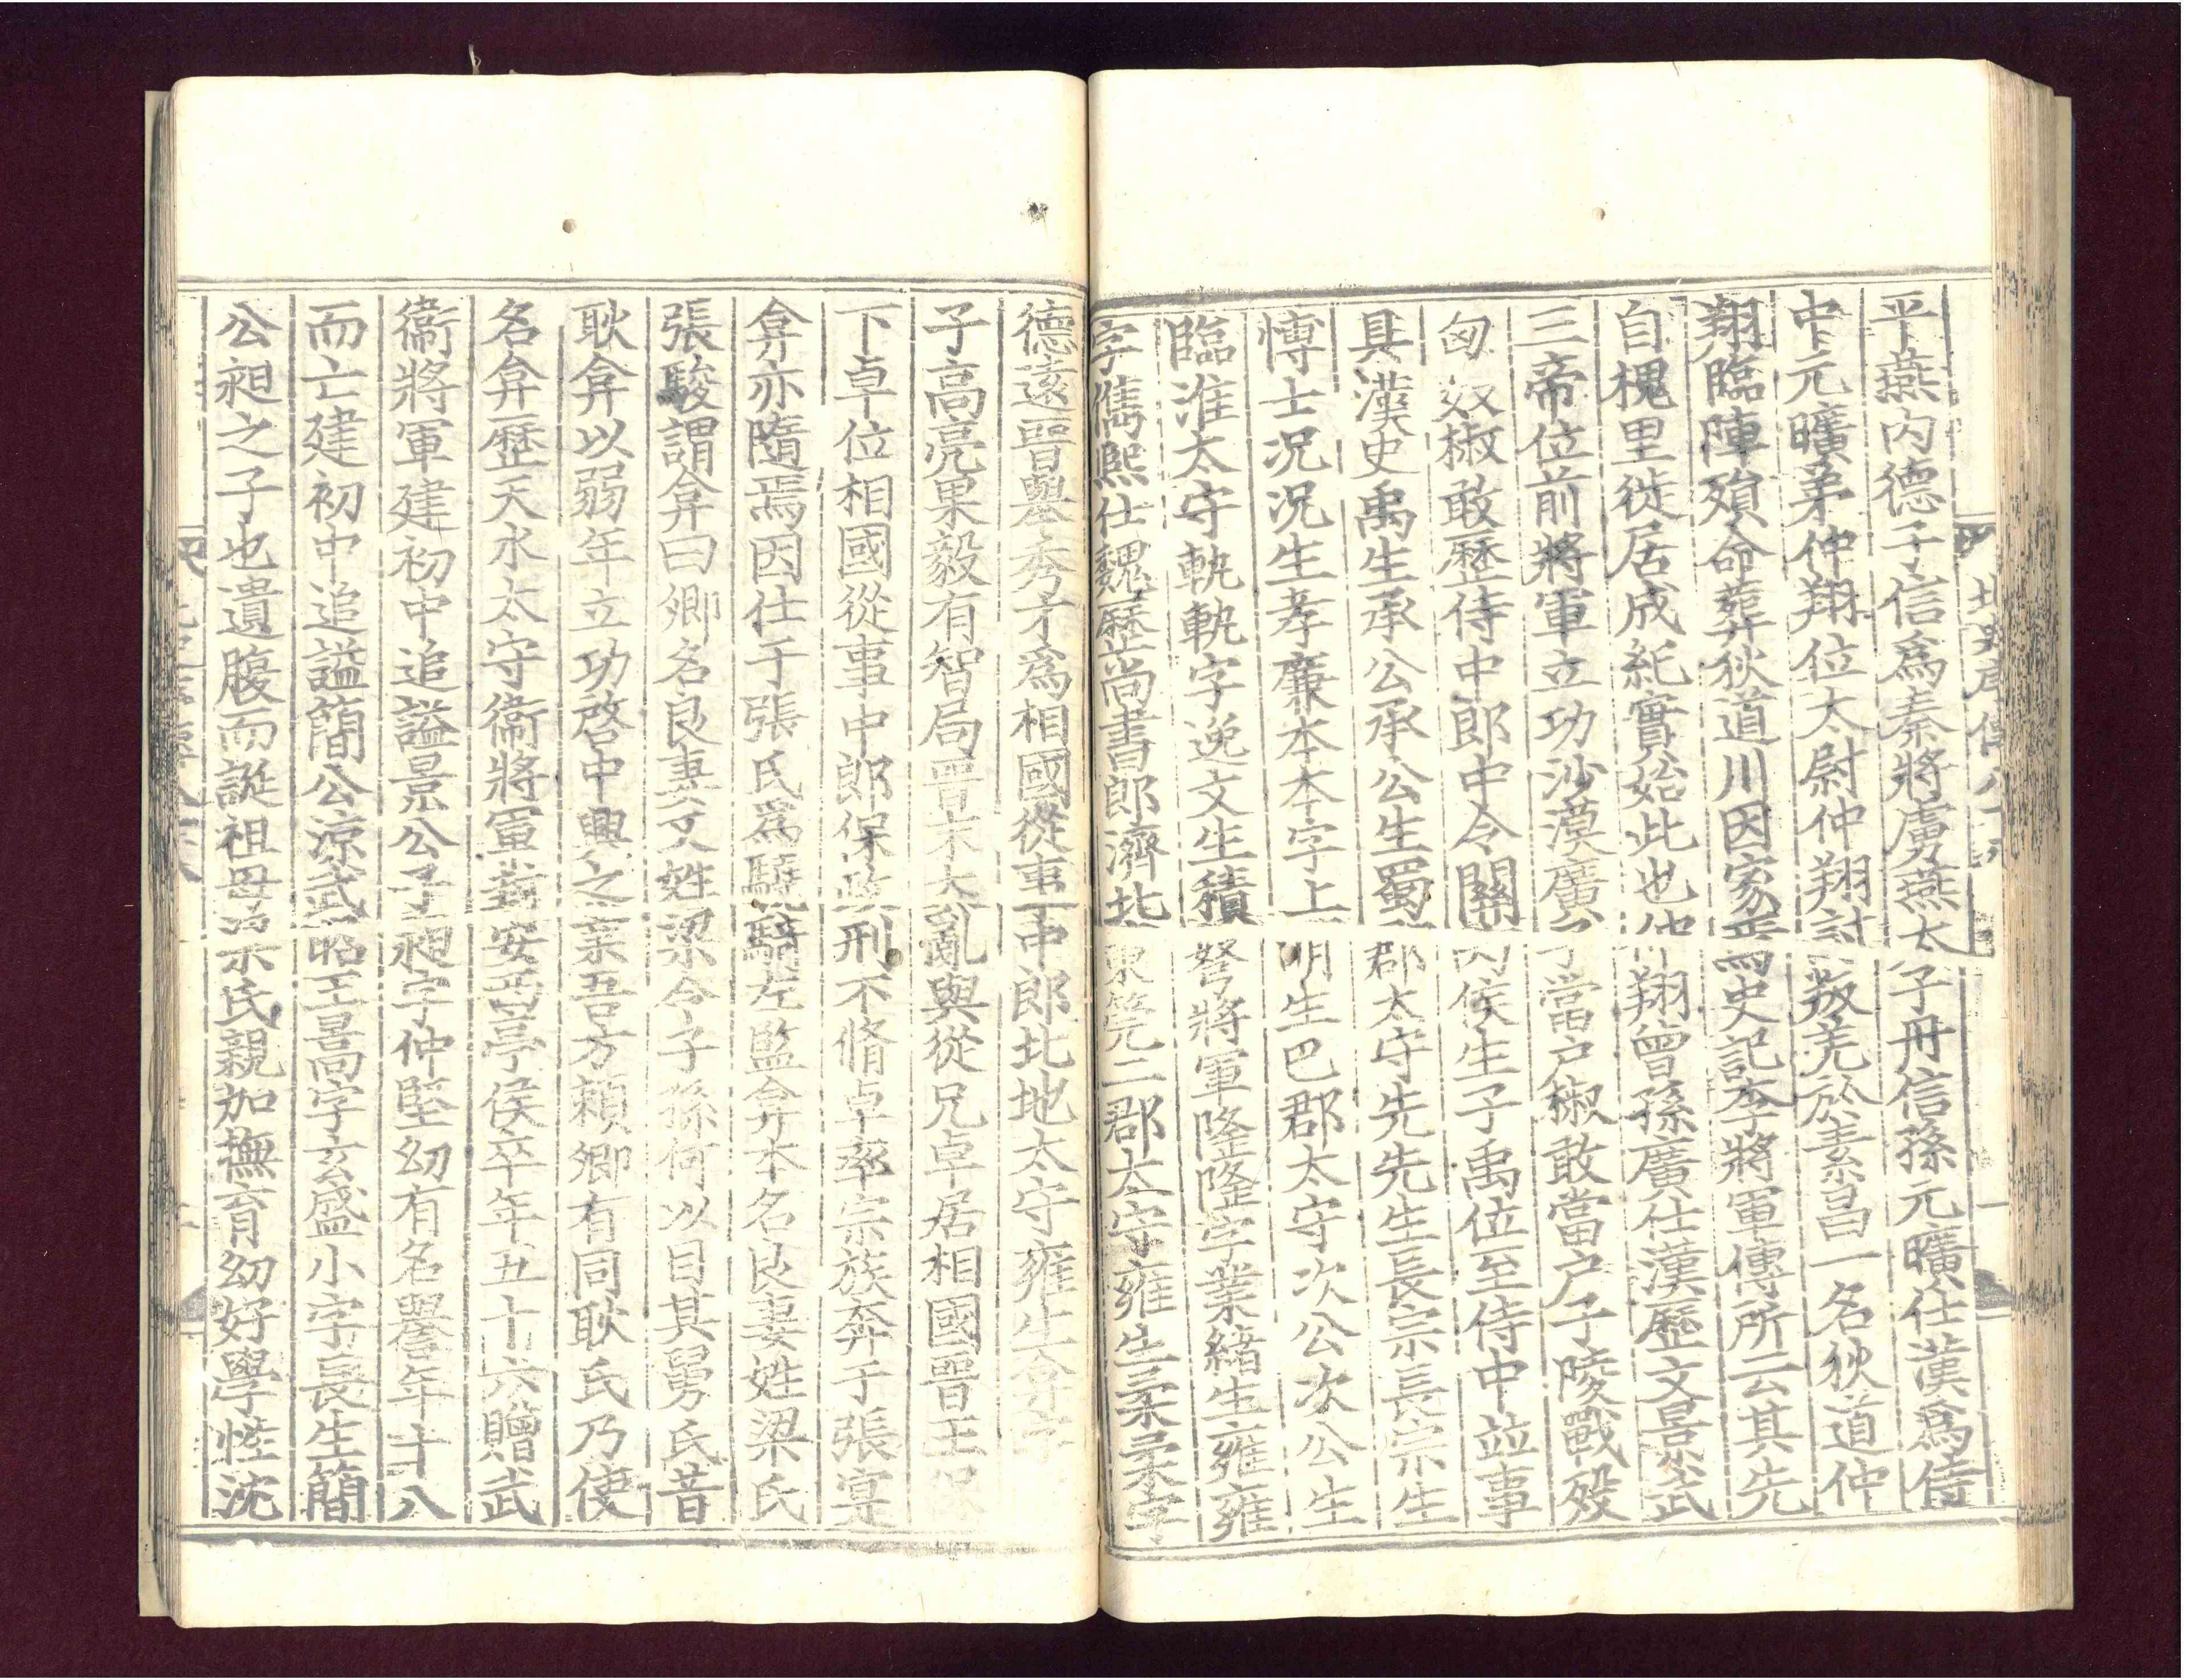 平燕内德子信爲秦將虜燕太子丹信孫元曠仕漢爲侍
中元曠弟仲翔位太尉仲翔討叛羌於素昌一名狄道仲
翔臨陣殞命葬狄道川因家焉史記李將軍傳所云其先
自槐里徙居成紀實始此也仲翔曾孫廣仕漢歷文景武
三帝位前將軍立功沙漠廣子當户椒敢當户子陵戰殁
匈奴椒敢歷侍中郎中令關内侯生子禹位至侍中並事
具漢史禹生承公承公生蜀郡太守先先生長宗長宗生
博士况况生孝廉本本字上明生巴郡太守次公次公生
臨淮太守軌軌字逸文生積弩將軍隆隆字業緒生雍雍
字儁熙仕魏歷尚書郎濟北東筦二郡太守雍生柔柔字
德遠晉舉秀才爲相國從事中郎北地太守雍生弇字
子高亮果毅有智局晋末大亂與從兄卓居相國晋王保
下卓位相國從事中郎保政刑不脩卓率宗族奔于張寔
弇亦隨焉因仕于張氏爲驍騎左監弇本名良妻姓梁氏
張駿謂弇曰卿名良妻又姓梁令子孫何以目其舅氏昔
耿弇以弱年立功啓中興之業吾方賴卿有同耿氏乃使
名弇歷天水太守衛將軍封安西亭侯卒年五十六贈武
衛將軍建初中追謚景公子昶字仲堅幼有名譽年十八
而亡建初中追謚簡公涼武昭王暠字玄盛小字長生簡
公昶之子也遺腹而誕祖母梁氏親加撫育幼好學性沈